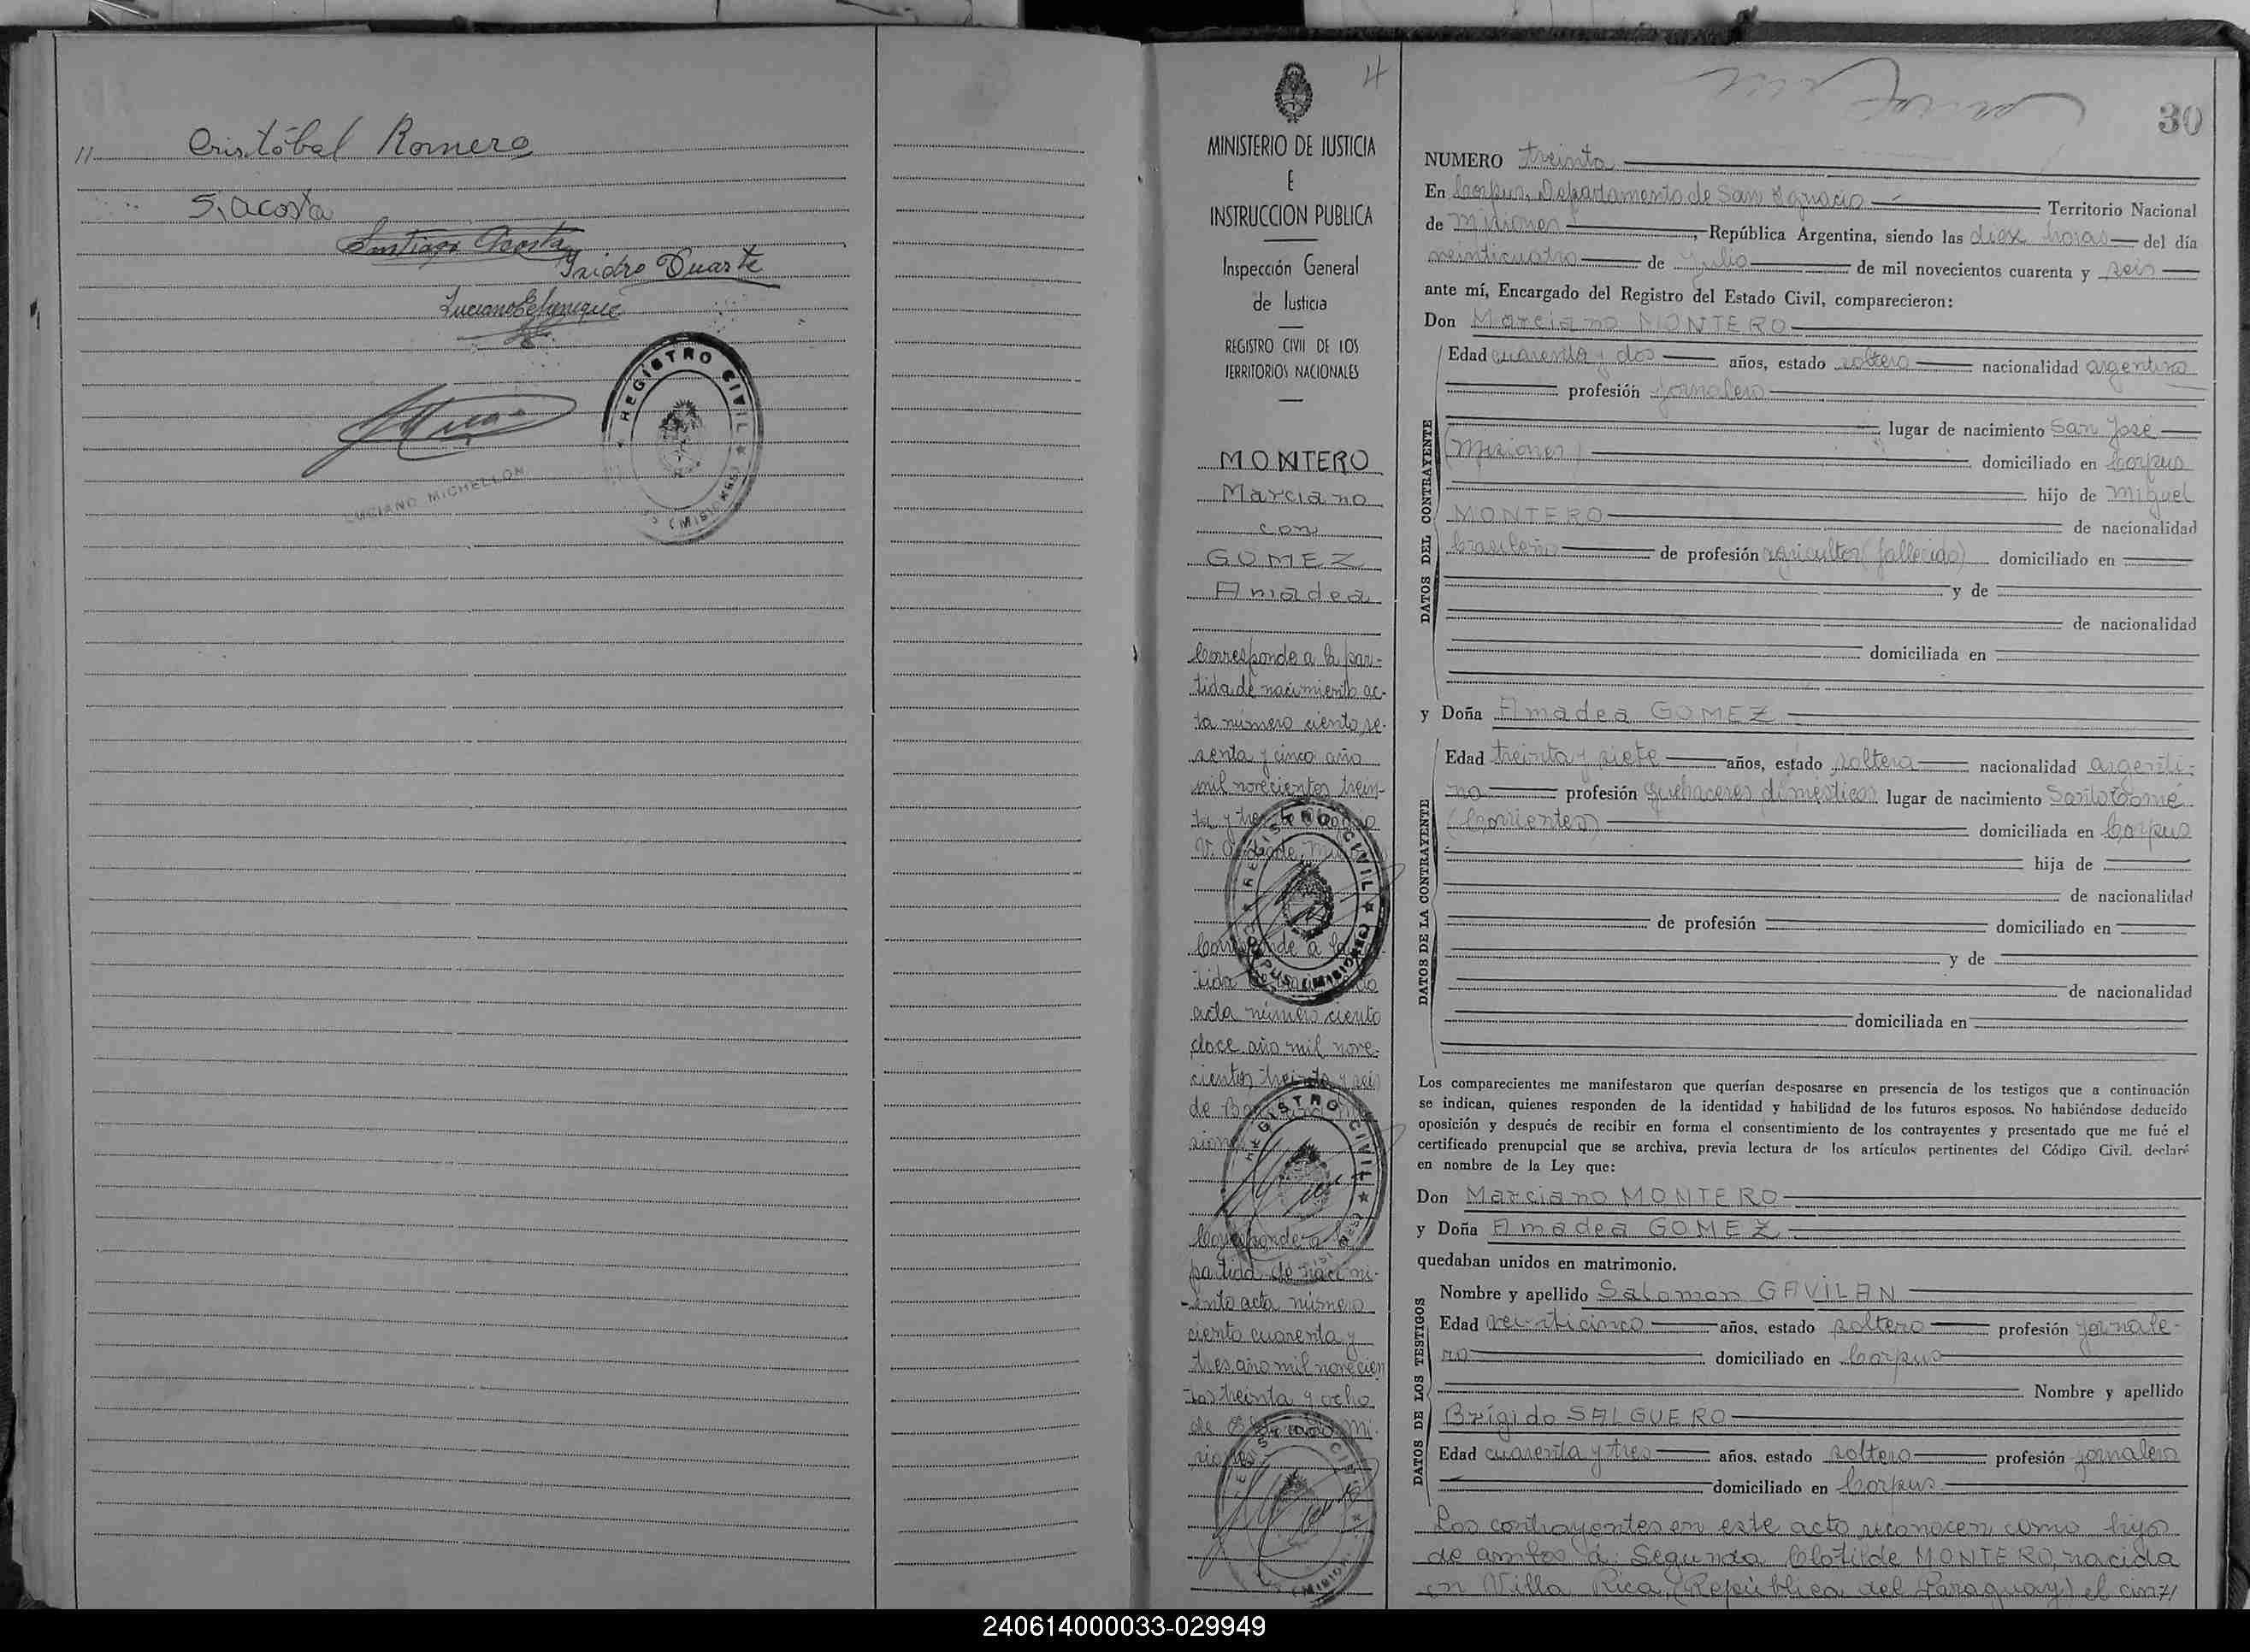 11
Cristóbal Romero
S. Acosta
Santiago Acosta
Isidro Duarte
REGISTRO CIVIL
LUCIANO MICHELLON
4
MINISTERIO DE JUSTICIA
E
INSTRUCCION PUBLICA
Inspección General
de Justicia
REGISTRO CIVIL DE LOS
TERRITORIOS NACIONALES
MONTERO
Marciano
con
GOMEZ
Amadea
Corresponde a la par-
tida de nacimiento ac-
ta número ciento se-
senta y cinco año
mil novecientos trein-
ta y tres
REGISTRO CIVIL
CORPUS (MISIONES)
acta número ciento
doce año mil nove-
cientos treinta y seis
REGISTRO CIVIL
Corresponde a la
partida de nacimi-
ento acta número
ciento cuarenta y
tres año mil novecien
tos treinta y ocho
30
NUMERO treinta
En Corpus, Departamento de San Ignacio Territorio Nacional
de Misiones, República Argentina, siendo las diez horas del día
veinticuatro de Julio de mil novecientos cuarenta y seis
ante mí, Encargado del Registro del Estado Civil, comparecieron:
Don Marciano MONTERO
DATOS DEL CONTRAYENTE
Edad cuarenta y dos años, estado soltero nacionalidad argentina
profesión jornalero
lugar de nacimiento San José
(Misiones) domiciliado en Corpus
hijo de Miguel
MONTERO de nacionalidad
brasileño de profesión agricultor (fallecido) domiciliado en
y de
de nacionalidad
domiciliada en
y Doña Amadea GOMEZ
DATOS DE LA CONTRAYENTE
Edad treinta y siete años, estado soltera nacionalidad argenti-
na profesión quehaceres domésticos lugar de nacimiento Santo Tomé
(Corrientes) domiciliada en Corpus
hija de
de nacionalidad
de profesión domiciliado en
y de
de nacionalidad
domiciliada en
Los comparecientes me manifestaron que querían desposarse en presencia de los testigos que a continuación
se indican, quienes responden de la identidad y habilidad de los futuros esposos. No habiéndose deducido
oposición y después de recibir en forma el consentimiento de los contrayentes y presentado que me fué el
certificado prenupcial que se archiva, previa lectura de los artículos pertinentes del Código Civil, declaré
en nombre de la Ley que:
Don Marciano MONTERO
y Doña Amadea GOMEZ
quedaban unidos en matrimonio.
DATOS DE LOS TESTIGOS
Nombre y apellido Salomon GAVILAN
Edad veinticinco años, estado soltero profesión jornale-
ro domiciliado en Corpus
Nombre y apellido
Brígido SALGUERO
Edad cuarenta y tres años, estado soltero profesión jornalero
domiciliado en Corpus
Los contrayentes en este acto reconocen como hijos
de ambos á: Segunda Clotilde MONTERO, nacida
en Villa Rica, (República del Paraguay) el cin-//
240614000033-029949